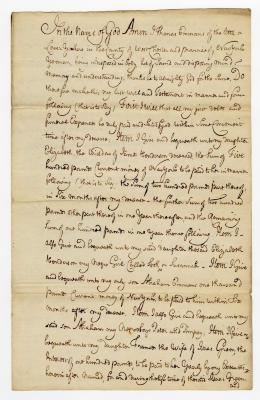 In the Name of God Amen I Thomas Emmons of the
of in the County of West Chester and province of New York
Yeoman, being indisposed in body but of Sound and disposing mind
Memory and understanding thanks be to almighty God for the same Do
therefore make this my last Will and Testament in manner and form
following (that is to say) First I Will that all my just Debts and
funeral Expences be well paid and Satisfied within Some Convenient
time after my Decease. Item I Give and bequeath unto my Daughter
Elizabeth the Widow of James deceased the Sum of Five
hundred pounds Current money of New York to be paid to her in manner
following (that is to say) the Sum of two hundred pounds part thereof
in Six months after my Decease the further Sum of two hundred
pounds other part thereof in one Year thereafter and the remaining
Sum of one hundred pounds in one Year then following Item I
also Give and bequeath unto my said Daughter Elizabeth
my Negro Girl Called Item I Give
and bequeath unto my only son Abraham Emmons one thousand
pounds Current money of New York to be paid to him within Six
months after my Decease Item I also Give and bequeath unto my
said son Abraham my Negro boys and Item I Give and
bequeath unto my Daughter the Wife of Isaac Green the
of one hundred pounds to be paid to her Yearly by my Executors
herein after named for and during the life time of the said Isaac Green
and